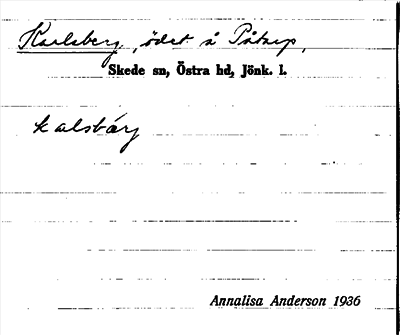 Karlsberg, ödet å Påtorp,
Skede sn, Östra hd, Jönk. l.
kalsbärg
Annalisa Anderson 1936